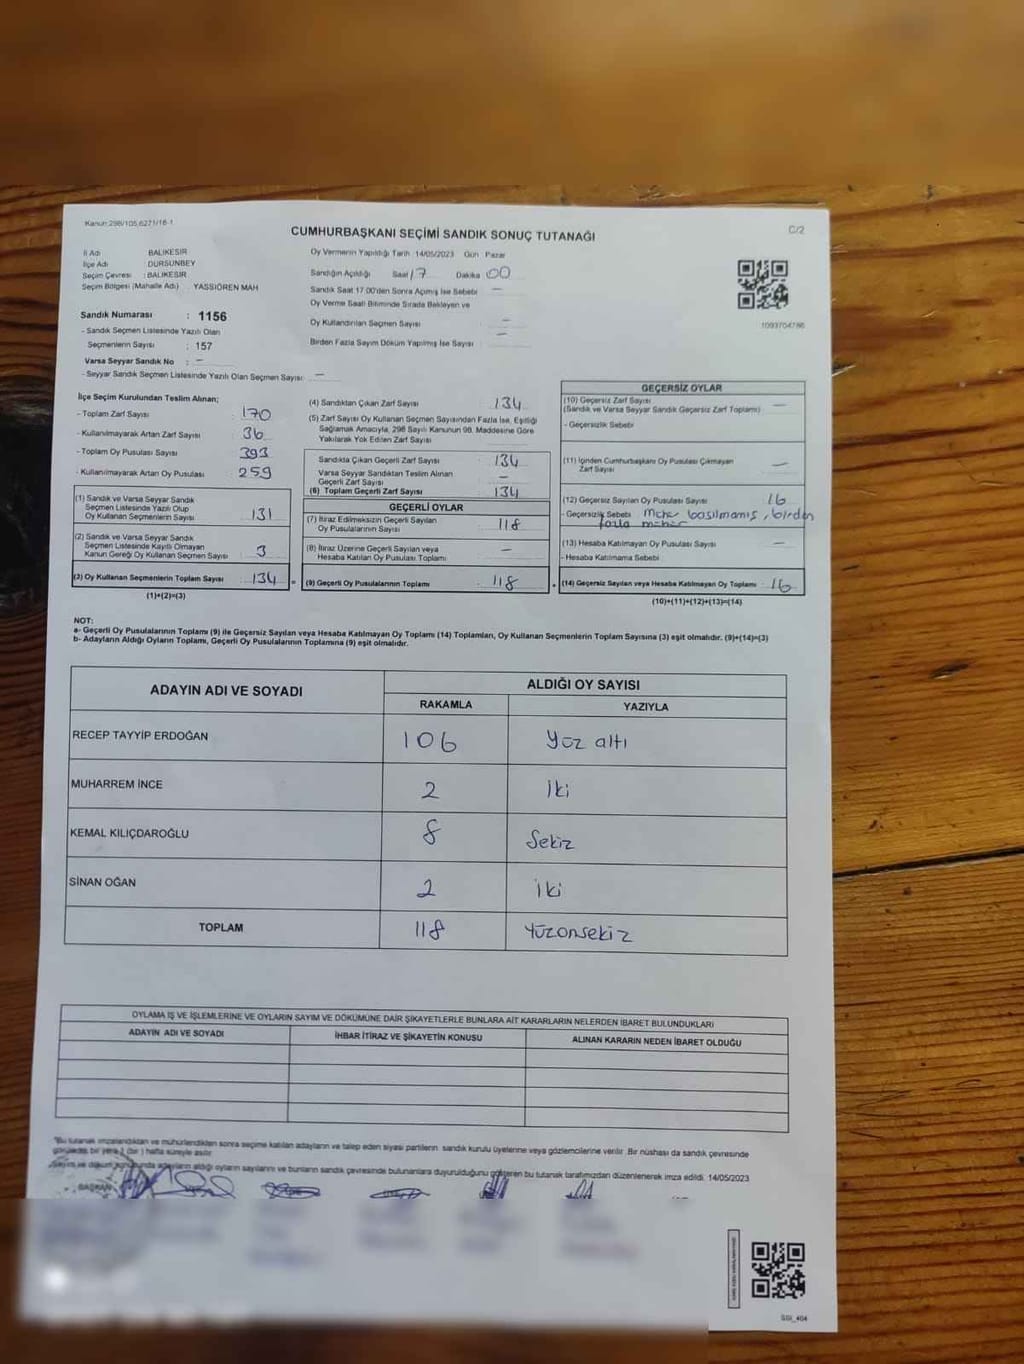 Kanun:298/105,6271/16-1
CUMHURBAŞKANI SEÇİMİ SANDIK SONUÇ TUTANAĞI
C/2
İl Adı BALIKESİR
İlçe Adı : DURSUNBEY
Seçim Çevresi : BALIKESİR
Seçim Bölgesi (Mahalle Adı) : YASSIÖREN MAH
Sandık Numarası : 1156
- Sandık Seçmen Listesinde Yazılı Olan
Seçmenlerin Sayısı : 157
Varsa Seyyar Sandık No : -
- Seyyar Sandık Seçmen Listesinde Yazılı Olan Seçmen Sayısı: -
Oy Vermenin Yapıldığı Tarih 14/05/2023 Gün Pazar
Sandığın Açıldığı Saat 17 Dakika 00
Sandık Saat 17.00'den Sonra Açılmış İse Sebebi -
Oy Verme Saati Bitiminde Sırada Bekleyen ve
Oy Kullandırılan Seçmen Sayısı -
Birden Fazla Sayım Döküm Yapılmış İse Sayısı -
1093704786
İlçe Seçim Kurulundan Teslim Alınan;
- Toplam Zarf Sayısı : 170
- Kullanılmayarak Artan Zarf Sayısı : 36
- Toplam Oy Pusulası : 393
- Kullanılmayarak Artan Oy Pusulası : 259
(1) Sandık ve Varsa Seyyar Sandık
Seçmen Listesinde Yazılı Olup
Oy Kullanan Seçmenlerin Sayısı : 131
(2) Sandık ve Varsa Seyyar Sandık
Seçmen Listesinde Kayıtlı Olmayan
Kanun Gereği Oy Kullanan Seçmen Sayısı : 3
(3) Oy Kullanan Seçmenlerin Toplam Sayısı : 134
(1)+(2)=(3)
(4) Sandıktan Çıkan Zarf Sayısı : 134
(5) Zarf Sayısı Oy Kullanan Seçmen Sayısından Fazla İse, Eşitliği
Sağlamak Amacıyla, 298 Sayılı Kanunun 98. Maddesine Göre
Yakılarak Yok Edilen Zarf Sayısı
Sandıkta Çıkan Geçerli Zarf Sayısı : 134
Varsa Seyyar Sandıktan Teslim Alınan
Geçerli Zarf Sayısı : -
(6) Toplam Geçerli Zarf Sayısı : 134
GEÇERLİ OYLAR
(7) İtiraz Edilmeksizin Geçerli Sayılan
Oy Pusulalarının Sayısı : 118
(8) İtiraz Üzerine Geçerli Sayılan veya
Hesaba Katılan Oy Pusulası Toplamı : -
(9) Geçerli Oy Pusulalarının Toplamı : 118
GEÇERSİZ OYLAR
(10) Geçersiz Zarf Sayısı
(Sandık ve Varsa Seyyar Sandık Geçersiz Zarf Toplamı) -
- Geçersizlik Sebebi
(11) İçinden Cumhurbaşkanı Oy Pusulası Çıkmayan
Zarf Sayısı : -
(12) Geçersiz Sayılan Oy Pusulası Sayısı : 16
- Geçersizlik Sebebi Mühür basılmamış, birden
fazla mühür
(13) Hesaba Katılmayan Oy Pusulası Sayısı : -
- Hesaba Katılmama Sebebi
(14) Geçersiz Sayılan veya Hesaba Katılmayan Oy Toplamı : 16
(10)+(11)+(12)+(13)=(14)
NOT:
a- Geçerli Oy Pusulalarının Toplamı (9) ile Geçersiz Sayılan veya Hesaba Katılmayan Oy Toplamı (14) Toplamları, Oy Kullanan Seçmenlerin Toplam Sayısına (3) eşit olmalıdır. (9)+(14)=(3)
b- Adayların Aldığı Oyların Toplamı, Geçerli Oy Pusulalarının Toplamına (9) eşit olmalıdır.
ADAYIN ADI VE SOYADI ALDIĞI OY SAYISI
RAKAMLA YAZIYLA
RECEP TAYYİP ERDOĞAN 106 Yüz altı
MUHARREM İNCE 2 İki
KEMAL KILIÇDAROĞLU 8 Sekiz
SİNAN OĞAN 2 İki
TOPLAM 118 Yüzonsekiz
OYLAMA İŞ VE İŞLEMLERİNE VE OYLARIN SAYIM VE DÖKÜMÜNE DAİR ŞİKAYETLERLE BUNLARA AİT KARARLARIN NELERDEN İBARET BULUNDUKLARI
ADAYIN ADI VE SOYADI İHBAR İTİRAZ VE ŞİKAYETİN KONUSU ALINAN KARARIN NEDEN İBARET OLDUĞU
"Bu tutanak imzalandıktan ve mühürlendikten sonra seçime katılan adayların ve talep eden siyasi partilerin sandık kurulu üyelerine veya gözlemcilerine verilir. Bir nüshası da sandık çevresinde
görülecek bir yere 1 (bir) hafta süreyle asılır.
Sayım ve döküm sonucunda adayların aldığı oyların sayılarını ve bunların sandık çevresinde bulunanlara duyurulduğunu gösteren bu tutanak tarafımızdan düzenlenerek imza edildi. 14/05/2023
BAŞKAN
SSI_404